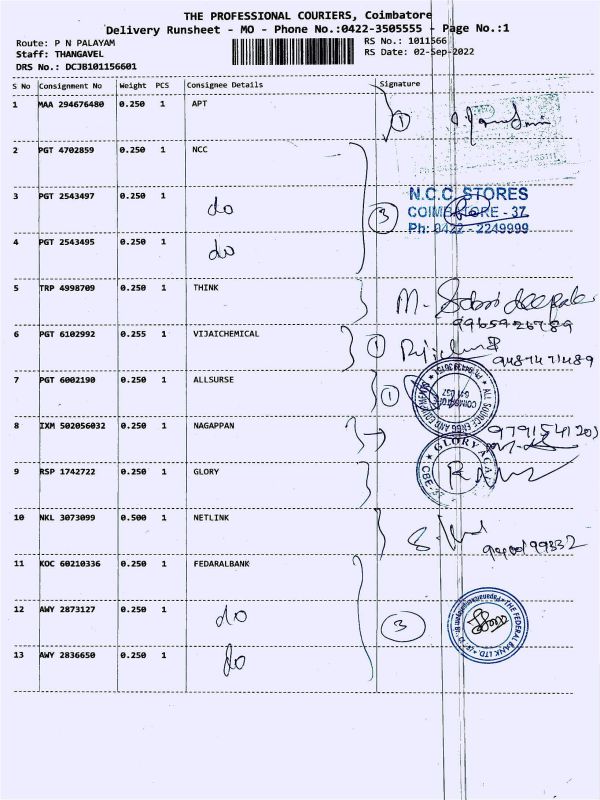 THE PROFESSIONAL COURIERS, Coimbatore
Delivery Runsheet - MO - Phone No.:0422-3505555 - Page No.:1
Route: P N PALAYAM
RS No.: 1011566
Staff: THANGAVEL
RS Date: 02-Sep-2022
DRS No.: DCJB101156601
S No Consignment No Weight PCS Consignee Details Signature
1 MAA 294676480 0.250 1 APT 1
2 PGT 4702859 0.250 1 NCC
3 PGT 2543497 0.250 1 do 3
N.C.C. STORES
COIMBATORE - 37.
Ph: 0422 - 2249999
4 PGT 2543495 0.250 1 do
5 TRP 4998709 0.250 1 THINK
9965926789
6 PGT 6102992 0.255 1 VIJAICHEMICAL 1
9487471489
7 PGT 6002190 0.250 1 ALLSURSE 1
8 IXM 502056032 0.250 1 NAGAPPAN
9791541203
9 RSP 1742722 0.250 1 GLORY
GLORY
CBE-37
10 NKL 3073099 0.500 1 NETLINK
11 KOC 60210336 0.250 1 FEDARALBANK
12 AWY 2873127 0.250 1 do 3
THE FEDERAL BANK LTD.
13 AWY 2836650 0.250 1 do